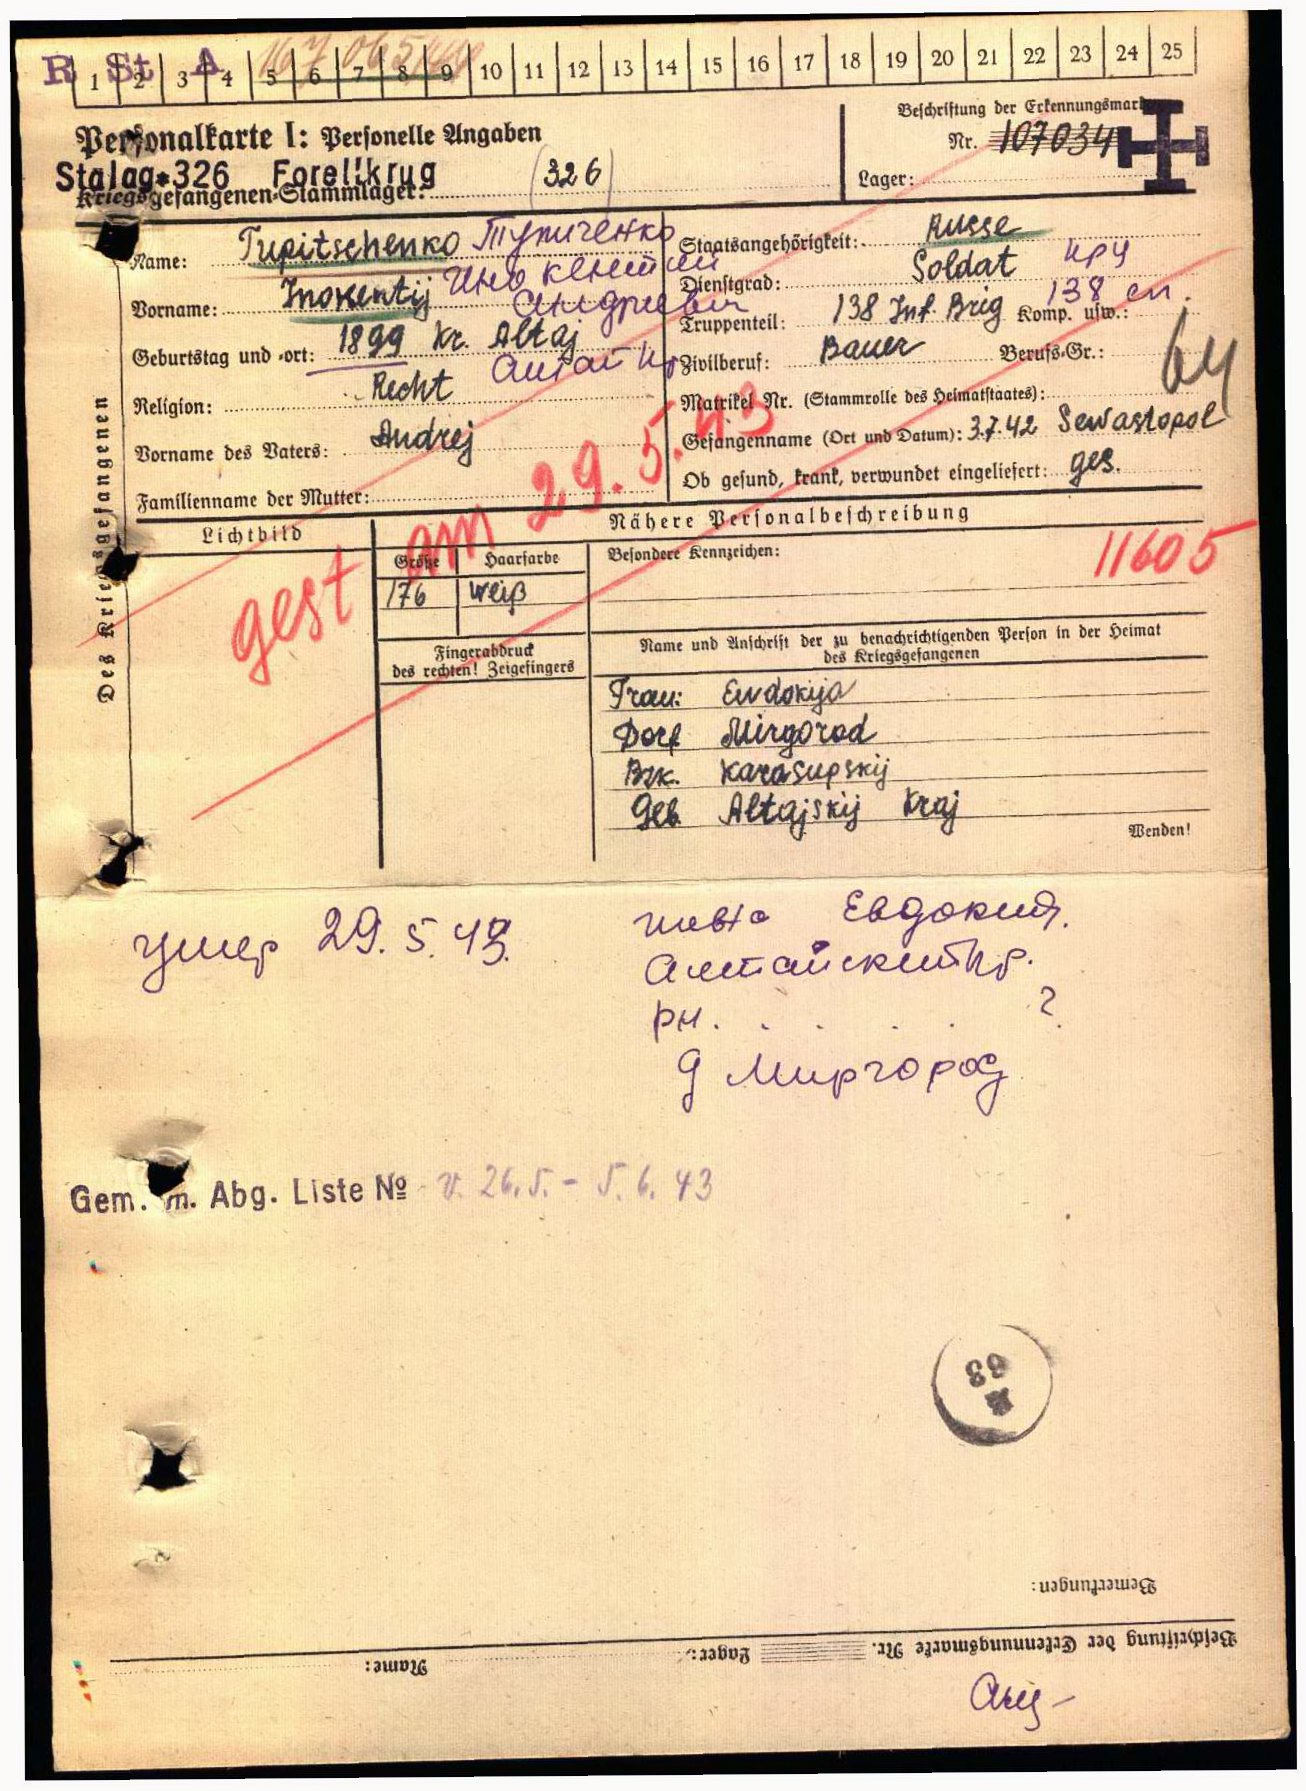 R St A
1 2 3 4 5 6 7 8 9 10 11 12 13 14 15 16 17 18 19 20 21 22 23 24 25
Personalkarte I: Personelle Angaben
Beschriftung der Erkennungsmarke
Nr. 107034
Stalag 326 Forellkrug (326)
Kriegsgefangenen-Stammlager:
Lager:
Des Kriegsgefangenen
Name: Tupitschenko Тупиченко
Vorname: Inokentij Инокентий
Андриевич
Geburtstag und -ort: 1899 Kr. Altaj
Алтай кр
Religion: Recht
Vorname des Vaters: Andrej
Familienname der Mutter:
Staatsangehörigkeit: Russe
Dienstgrad: Soldat кру
Truppenteil: 138 Inf. Brig Komp. usw.: 138 сп.
Zivilberuf: Bauer Berufs-Gr.:
64
Matrikel Nr. (Stammrolle des Heimatstaates):
Gefangenname (Ort und Datum): 3.7.42 Sewastopol
Ob gesund, krank, verwundet eingeliefert: ges.
gest am 29.5.43
Lichtbild
Nähere Personalbeschreibung
Größe Haarfarbe
176 weiß
Besondere Kennzeichen:
11605
Fingerabdruck
des rechten! Zeigefingers
Name und Anschrift der zu benachrichtigenden Person in der Heimat
des Kriegsgefangenen
Frau: Ewdokija
Dorf Mirgorod
Bzk. Karasupskij
Geb. Altajskij Kraj
Wenden!
умер 29.5.43.
жена Евдокия.
Алтайский кр.
рн. . . . . ?
д Миргород
Gem. m. Abg. Liste № v. 26.5. - 5.6.43
63
Bemerkungen:
Beschriftung der Erkennungsmarke Nr. Lager: Name: